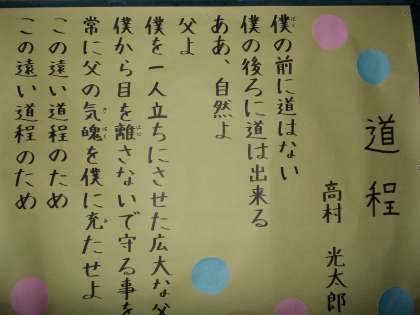 道程
高村 光太郎
僕の前に道はない
僕の後ろに道は出来る
ああ、自然よ
父よ
僕を一人立ちにさせた広大な父
僕から目を離さないで守る事を
常に父の気魄を僕に充たせよ
この遠い道程のため
この遠い道程のため